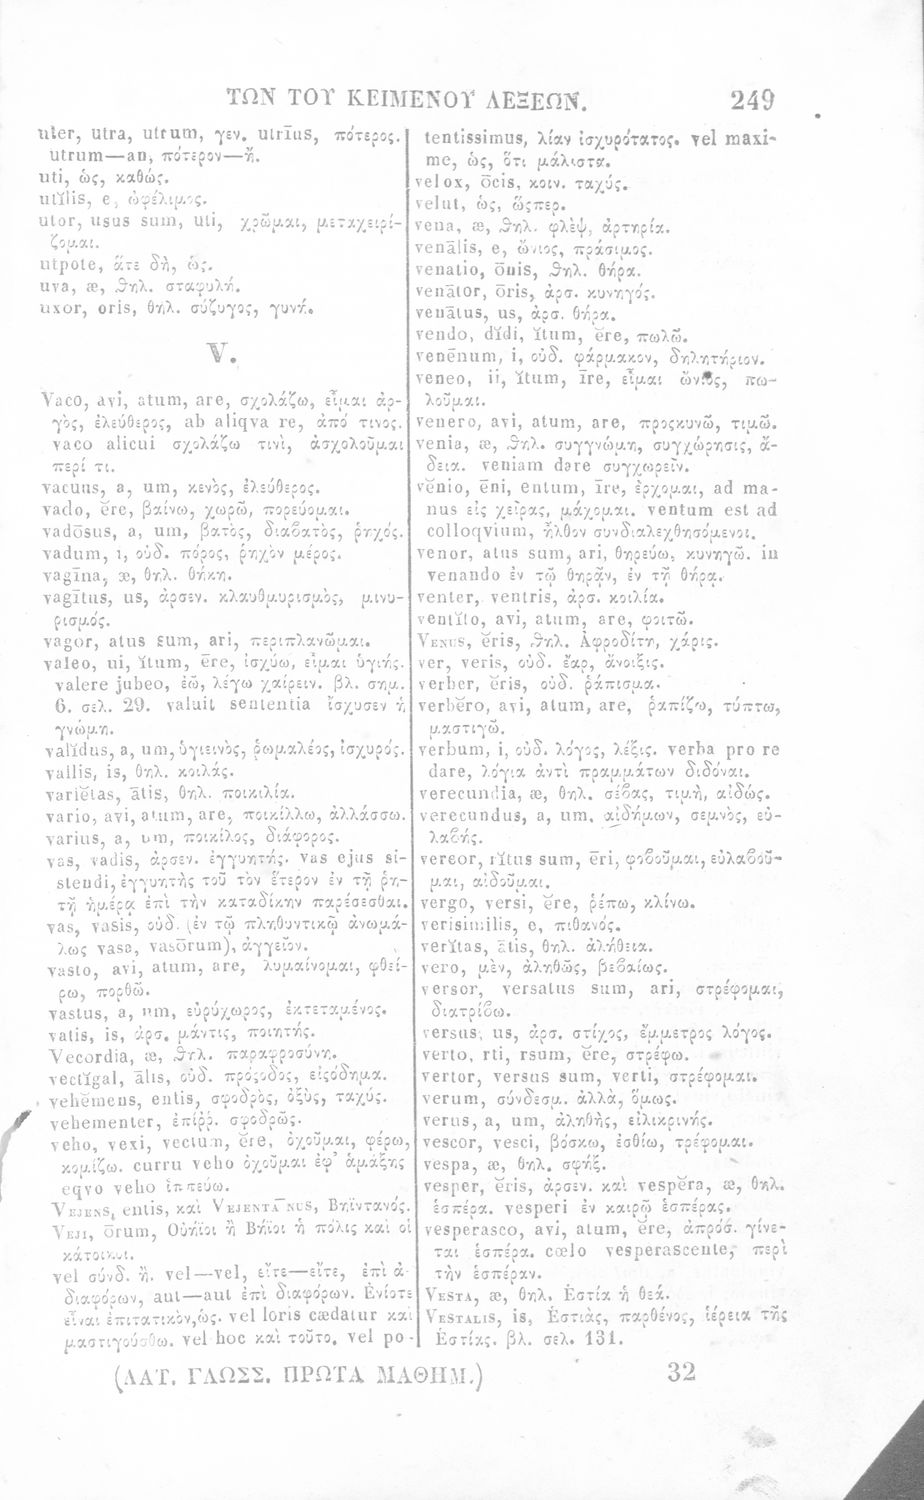 ΤΩΝ ΤΟΥ ΚΕΙΜΕΝΟΥ ΛΕΞΕΩΝ. 249
uter, utra, utrum, γεν. utrīus, πότερος.
utrum—an, πότερον—ἤ.
uti, ὡς, καθώς.
utĭlis, e, ὠφέλιμος.
utor, usus sum, uti, χρῶμαι, μεταχειρί-
ζομαι.
utpote, ἅτε δὴ, ὡς.
uva, æ, θηλ. σταφυλή.
uxor, oris, θηλ. σύζυγος, γυνή.
V.
Vaco, avi, atum, are, σχολάζω, εἶμαι ἀρ-
γὸς, ἐλεύθερος, ab aliqva re, ἀπό τινος.
vaco alicui σχολάζω τινὶ, ἀσχολοῦμαι
περί τι.
vacuus, a, um, κενὸς, ἐλεύθερος.
vado, ĕre, βαίνω, χωρῶ, πορεύομαι.
vadōsus, a, um, βατὸς, διαβατὸς, ῥηχός.
vadum, i, οὐδ. πόρος, ῥηχὸν μέρος.
vagīna, æ, θηλ. θήκη.
vagītus, us, ἀρσεν. κλαυθμυρισμὸς, μινυ-
ρισμός.
vagor, atus sum, ari, περιπλανῶμαι.
valeo, ui, ĭtum, ēre, ἰσχύω, εἶμαι ὑγιής.
valere jubeo, ἐῶ, λέγω χαίρειν. βλ. σημ.
6. σελ. 29. valuit sententia ἴσχυσεν ἡ
γνώμη.
valĭdus, a, um, ὑγιεινὸς, ῥωμαλέος, ἰσχυρός.
vallis, is, θηλ. κοιλάς.
variĕtas, ātis, θηλ. ποικιλία.
vario, avi, atum, are, ποικίλλω, ἀλλάσσω.
varius, a, um, ποικίλος, διάφορος.
vas, vadis, ἀρσεν. ἐγγυητής. vas ejus si-
stendi, ἐγγυητὴς τοῦ τὸν ἕτερον ἐν τῇ ῥη-
τῇ ἡμέρᾳ ἐπὶ τὴν καταδίκην παρέσεσθαι.
vas, vasis, οὐδ. (ἐν τῷ πληθυντικῷ ἀνωμά-
λως vasa, vasōrum), ἀγγεῖον.
vasto, avi, atum, are, λυμαίνομαι, φθεί-
ρω, πορθῶ.
vastus, a, um, εὐρύχωρος, ἐκτεταμένος.
vatis, is, ἀρσ. μάντις, ποιητής.
Vecordia, æ, θηλ. παραφροσύνη.
vectĭgal, ālis, οὐδ. πρόςοδος, εἰςόδημα.
vehĕmens, entis, σφοδρὸς, ὀξὺς, ταχύς.
vehementer, ἐπίρρ. σφοδρῶς.
veho, vexi, vectum, ĕre, ὀχοῦμαι, φέρω,
κομίζω. curru veho ὀχοῦμαι ἐφ' ἁμάξης
eqvo veho ἱππεύω.
Vejens, entis, καὶ Vejentānus, Βηϊντανός.
Veji, ōrum, Οὐήϊοι ἢ Βήϊοι ἡ πόλις καὶ οἱ
κάτοικοι.
vel σύνδ. ἤ. vel—vel, εἴτε—εἴτε, ἐπὶ ἀ-
διαφόρων, aut—aut ἐπὶ διαφόρων. Ἐνίοτε
εἶναι ἐπιτατικὸν, ὡς. vel loris cædatur καὶ
μαστιγούσθω. vel hoc καὶ τοῦτο. vel po-
tentissimus, λίαν ἰσχυρότατος. vel maxi-
me, ὡς, ὅτι μάλιστα.
velox, ōcis, κοιν. ταχύς.
velut, ὡς, ὥςπερ.
vena, æ, θηλ. φλὲψ, ἀρτηρία.
venālis, e, ὤνιος, πράσιμος.
venatio, ōnis, θηλ. θήρα.
venātor, ōris, ἀρσ. κυνηγός.
venātus, us, ἀρσ. θήρα.
vendo, dĭdi, ĭtum, ĕre, πωλῶ.
venēnum, i, οὐδ. φάρμακον, δηλητήριον.
veneo, ii, ĭtum, īre, εἶμαι ὤνιος, πω-
λοῦμαι.
venero, avi, atum, are, προςκυνῶ, τιμῶ.
venia, æ, θηλ. συγγνώμη, συγχώρησις, ἄ-
δεια. veniam dare συγχωρεῖν.
vĕnio, ēni, entum, īre, ἔρχομαι, ad ma-
nus εἰς χεῖρας, μάχομαι. ventum est ad
colloqvium, ἦλθον συνδιαλεχθησόμενοι.
venor, atus sum, ari, θηρεύω, κυνηγῶ. in
venando ἐν τῷ θηρᾷν, ἐν τῇ θήρᾳ.
venter, ventris, ἀρσ. κοιλία.
ventĭto, avi, atum, are, φοιτῶ.
Venus, ĕris, θηλ. Ἀφροδίτη, χάρις.
ver, veris, οὐδ. ἔαρ, ἄνοιξις.
verber, ĕris, οὐδ. ῥάπισμα.
verbĕro, avi, atum, are, ῥαπίζω, τύπτω,
μαστιγῶ.
verbum, i, οὐδ. λόγος, λέξις. verba pro re
dare, λόγια ἀντὶ πραγμάτων διδόναι.
verecundia, æ, θηλ. σέβας, τιμὴ, αἰδώς.
verecundus, a, um, αἰδήμων, σεμνὸς, εὐ-
λαβής.
vereor, rĭtus sum, ēri, φοβοῦμαι, εὐλαβοῦ-
μαι, αἰδοῦμαι.
vergo, versi, ĕre, ῥέπω, κλίνω.
verisimilis, e, πιθανός.
verĭtas, ātis, θηλ. ἀλήθεια.
vero, μὲν, ἀληθῶς, βεβαίως.
versor, versatus sum, ari, στρέφομαι,
διατρίβω.
versus, us, ἀρσ. στίχος, ἔμμετρος λόγος.
verto, rti, rsum, ĕre, στρέφω.
vertor, versus sum, verti, στρέφομαι.
verum, σύνδεσμ. ἀλλὰ, ὅμως.
verus, a, um, ἀληθὴς, εἰλικρινής.
vescor, vesci, βόσκω, ἐσθίω, τρέφομαι.
vespa, æ, θηλ. σφήξ.
vesper, ĕris, ἀρσεν. καὶ vespĕra, æ, θηλ.
ἑσπέρα. vesperi ἐν καιρῷ ἑσπέρας.
vesperasco, avi, atum, ĕre, ἀπρόσ. γίνε-
ται ἑσπέρα. cœlo vesperascente, περὶ
τὴν ἑσπέραν.
Vesta, æ, θηλ. Ἑστία ἡ θεά.
Vestalis, is, Ἑστιὰς, παρθένος, ἱέρεια τῆς
Ἑστίας. βλ. σελ. 131.
(ΛΑΤ. ΓΛΩΣΣ. ΠΡΩΤΑ ΜΑΘΗΜ.) 32